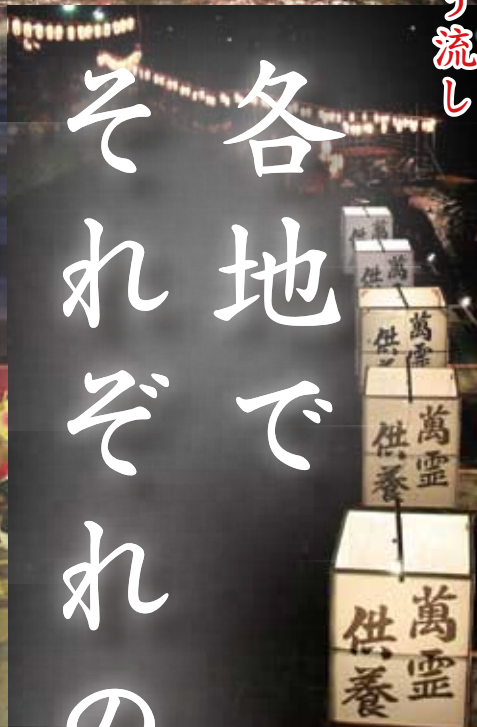 う流し
各地で
それぞれの
萬霊
供養
萬霊
供養
萬霊
供
萬
供
萬
供